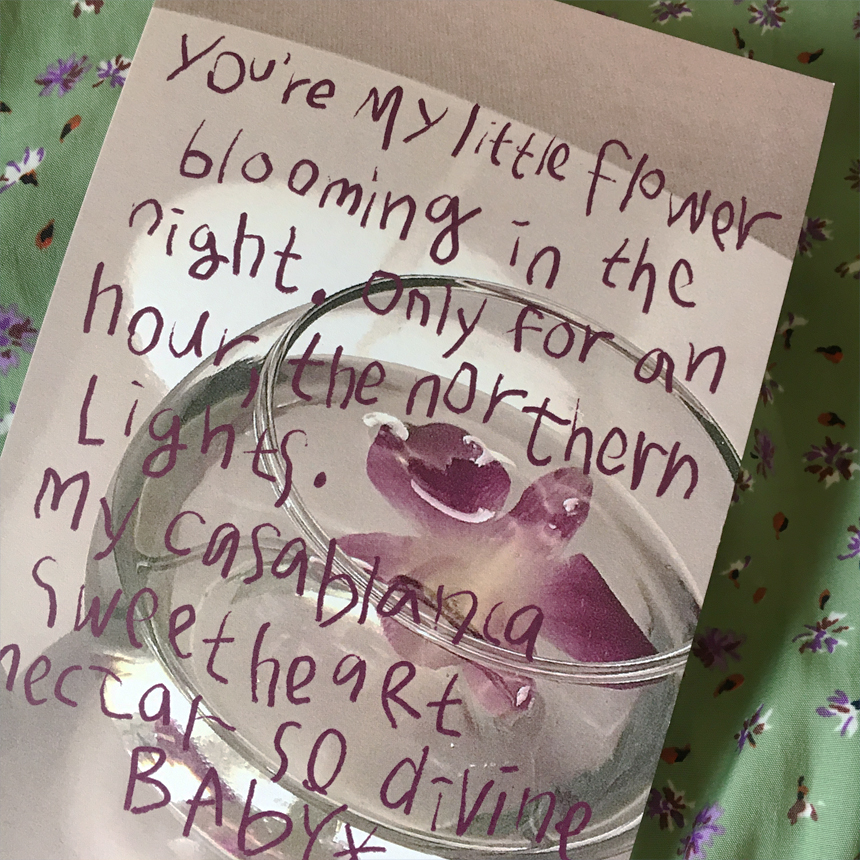 you're My little flower
blooming in the
night. only for an
hour, the northern
Lights.
My casablanca
Sweetheart
nectar so divine
BAbY*